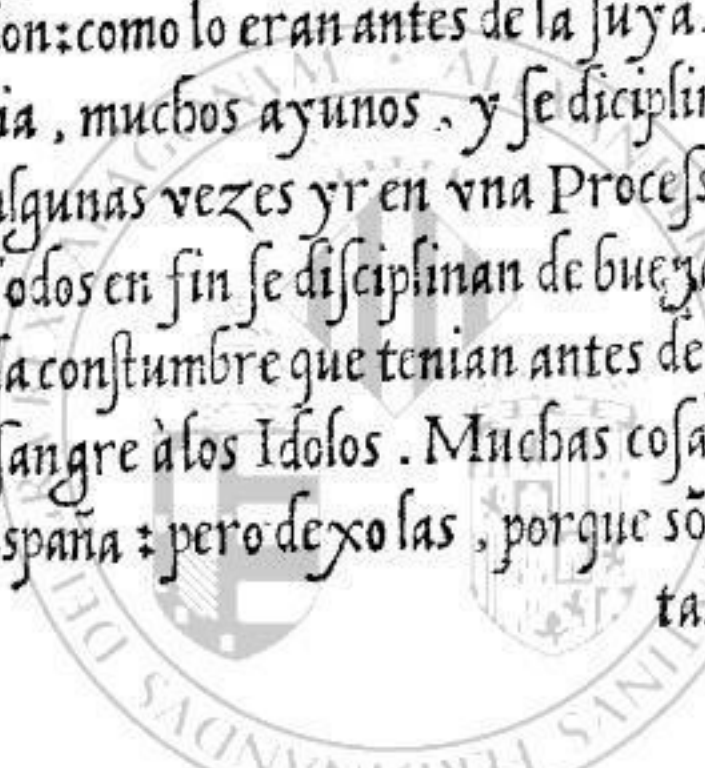 on: como lo eran antes de la ſuya.
ia, muchos ayunos, y ſe diciplin
algunas vezes yr en vna Proceſs
odos en fin ſe diſciplinan de buena
la conſtumbre que tenian antes de
ſangre à los Idolos. Muchas coſa
spaña: pero dexo las, porque sõ
ta